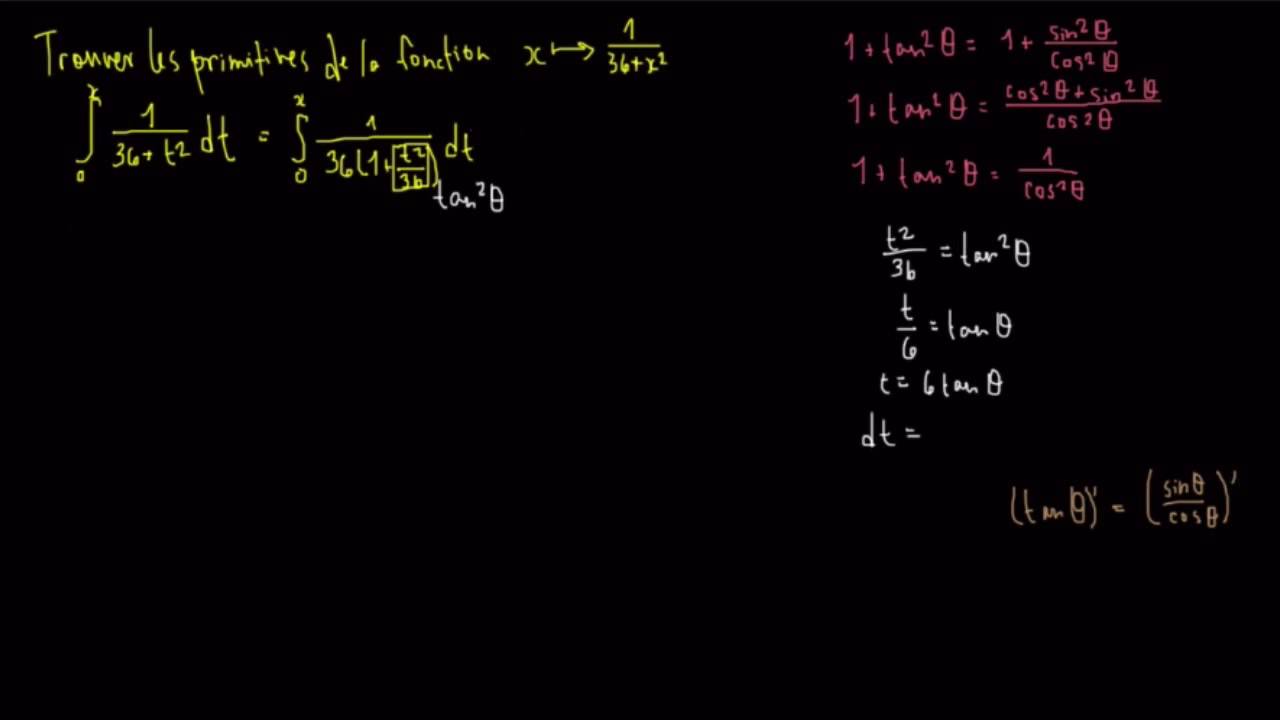 Trouver les primitives de la fonction x ↦ 1/(36+x²)
∫₀ˣ 1/(36+t²) dt = ∫₀ˣ 1/(36(1+t²/36)) dt
tan²θ
1+tan²θ = 1+ sin²θ/cos²θ
1+tan²θ = (cos²θ+sin²θ)/cos²θ
1+tan²θ = 1/cos²θ
t²/36 = tan²θ
t/6 = tanθ
t = 6tanθ
dt =
(tanθ)' = (sinθ/cosθ)'